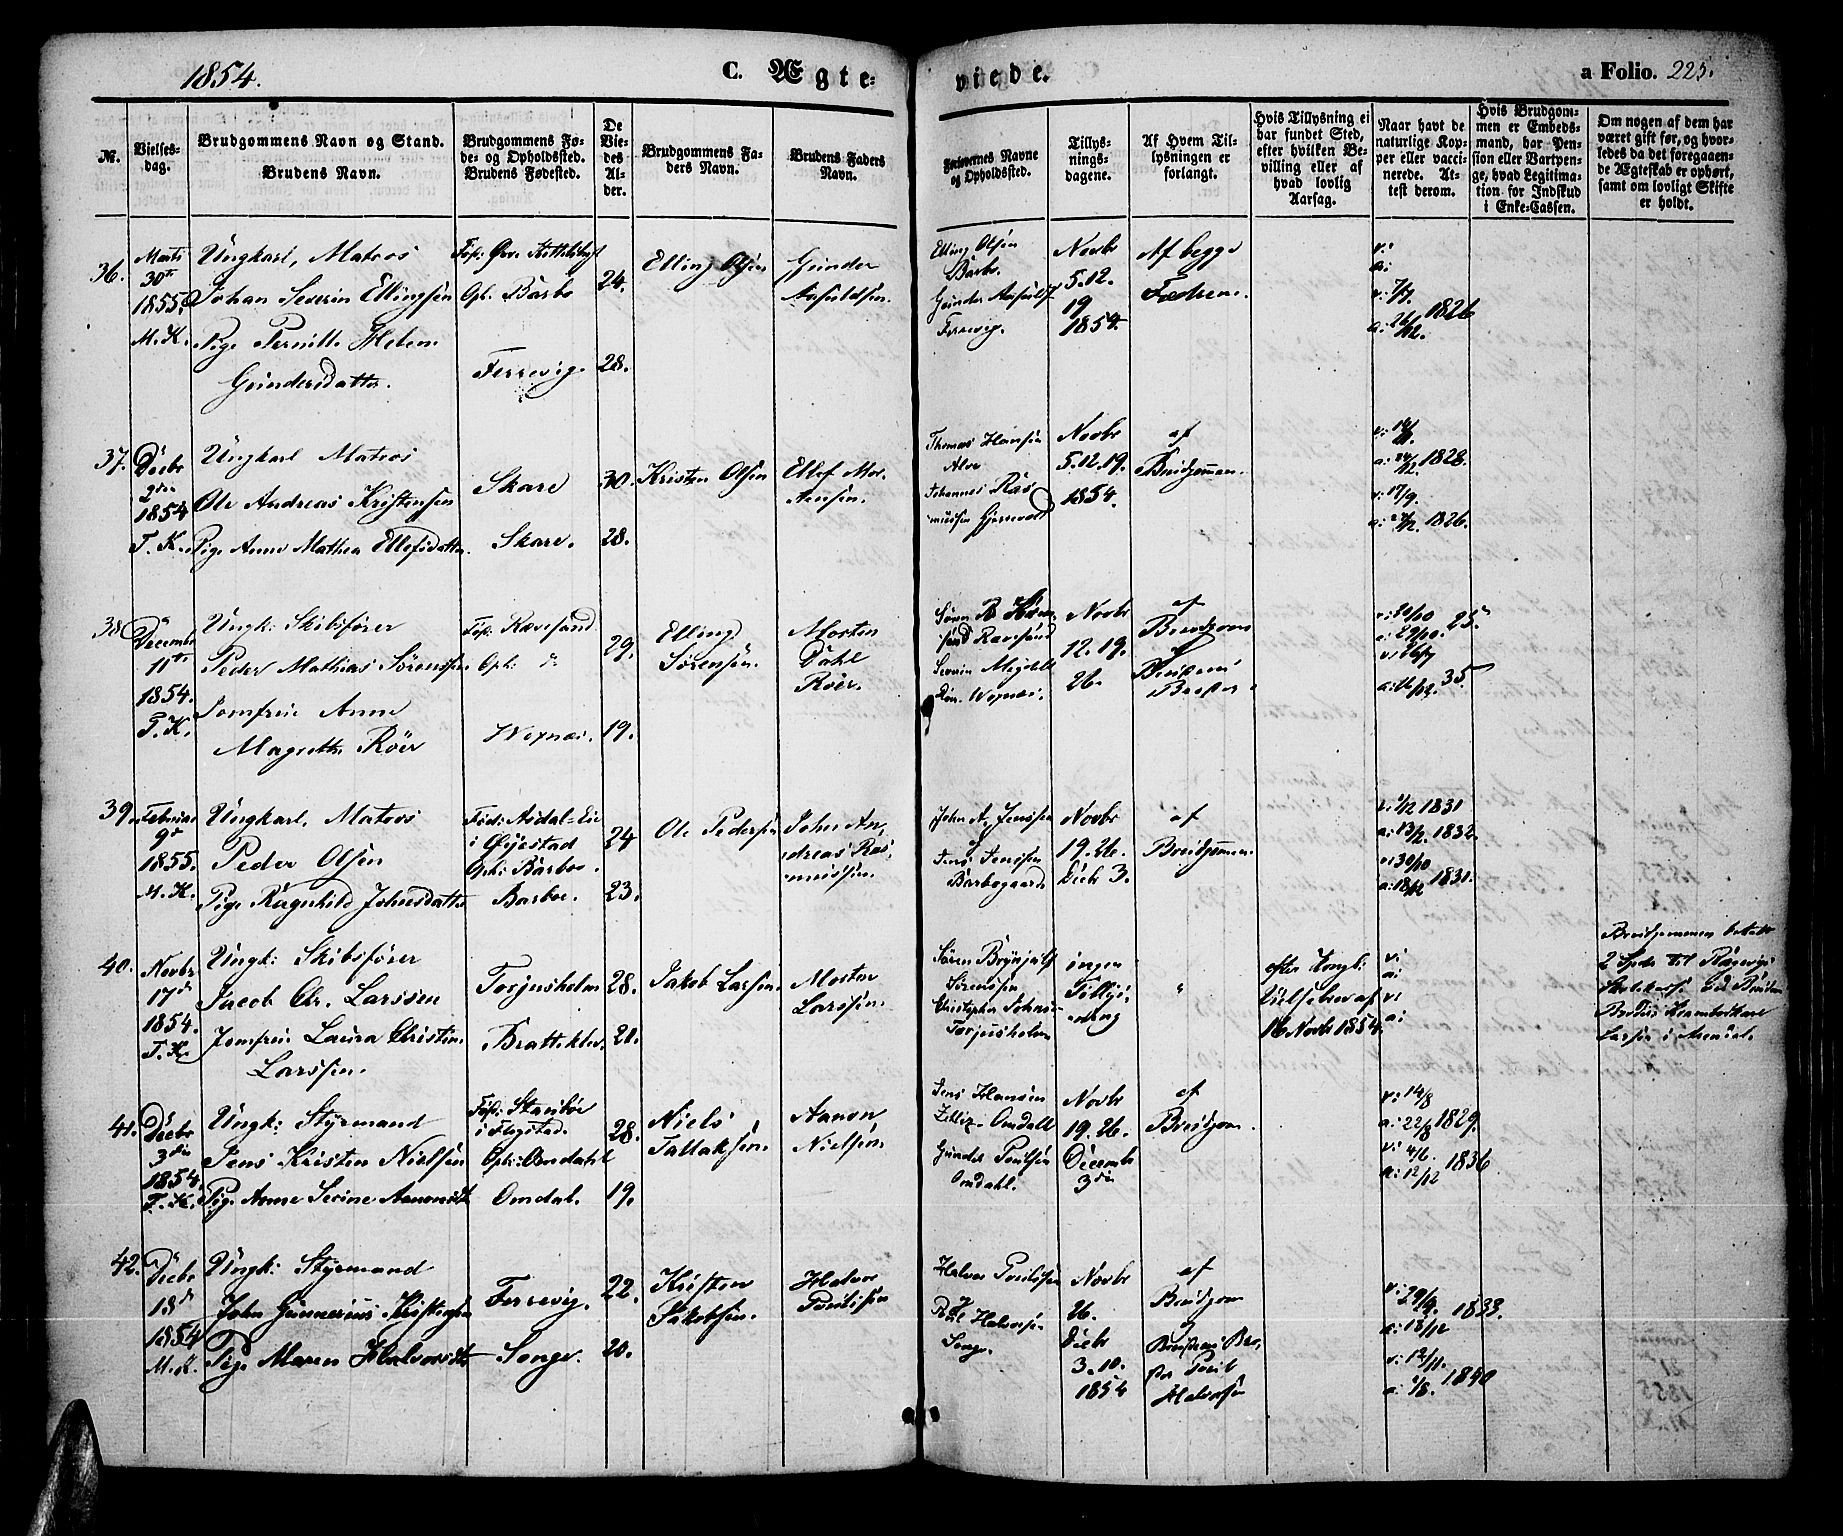 1854.
C. Ægte=
viede.
a Folio. 225.
№.
Vielses-
dag.
Brudgommens Navn og Stand.
Brudens Navn.
Brudgommens Fø-
de- og Opholdssted.
Brudens Fødested.
De
Vie-
des Al-
der.
Brudgommens Fa-
ders Navn.
Brudens Faders
Navn.
Forlovernes Navne
og Opholdssted.
Tillys-
nings-
dagene.
Af Hvem Til-
lysningen er
forlangt.
Hvis Tillysning ei
har fundet Sted,
efter hvilken Be-
villing eller af
hvad lovlig
Aarsag.
Naar havt de
naturlige Kop-
per eller vacci-
nerede. At-
test derom.
Hvis Brudgom-
men er Embeds-
mand, har Pen-
sion eller Vartpen-
ge, hvad Legitima-
tion for Indskud
i Enke-Cassen.
Om nogen af dem har
været gift før, og hvor-
ledes da det foregaaen-
de Ægteskab er ophørt,
samt om lovligt Skifte
er holdt.
36.
30te
1855.
M.K.
Ungkarl, Matros
Johan Severin Ellingsen
Pige Pernille Helene
Gundersdatter.
Oph. Barbo
Ferrevig.
24.
28.
Elling Olsen
Gunder
Elling Olsen
Barbo.
Gunder
Ferrevig.
Novbr
5.12.
19
1854.
Af begge
Fædrene.
1826
37.
Decbr
2den
1854
T.K.
Ungkarl Matros
Ole Andreas Kristensen
Pige Anne Mathea Ellefsdatter.
Skare
Skare.
30.
28.
Kristen Olsen
Ellef Mor-
tensen.
Thomas Hansen
Alve
Johannes Ras-
mussen
Novbr
5.12.19.
1854.
af
Brudgommen.
1828.
1826.
38.
Decembr
11te
1854.
T.K.
Ungk: Skibsfører
Peder Mathias Sørensen
Jomfru Anne
Magrethe Röer
Fød: Ravesand
Oph: d
29.
19.
Elling
Sørensen.
Morten
Dahl
Röer.
Ravesand
Novbr
12.19.
26.
af
Brudgom
35.
39.
Februar
9d
1855.
M.K.
Ungkarl, Matros
Peder Olsen
Pige Ragnhild Johnsdatter
i Øyestad
Oph: Barboe.
Barboe.
24
23.
Ole Pedersen
John An-
dreas Ras-
mussen.
John A. Jenssen
Jens Jenssen
Barbogaard
Novbr
19.26.
Decbr 3.
af
Brudgommen.
1831
1832.
1831.
40.
Novbr
17d
1854.
T.K.
Ungk: Skibsfører
Jacob Chr. Larssen
Jomfru Laura Christine
Larssen.
Torjusholm
Bratteklev.
28.
20.
Jakob Larsen.
Morten
Larssen.
Søren Brynjulf
Sørensen
Christopher Johnsen
Torjusholm
ingen
Tillys-
ning
"
efter Kongl:
16 Novbr 1854.
v:
a:
v:
a:
Brudgommen betalt
2 Spdr til
Larsen i Arendal.
41.
Decbr
3die
1854.
T.K.
Ungk: Styrmand
Jens Kristen Nielsen
Pige Anne Serine Aanonsdtr
Omdal.
28.
19.
Niels
Tallaksen.
Aanon
Nielsen.
Jens Hansen
Omdall
Gunder Poulsen
Omdahl.
Novbr
19.26.
Decembr
3die
af
Brudgom.
v: 14/8
a: 22/8 1829.
v: 4/6.
a: 12/12 1836
42.
Decbr
18d
1854
M.K.
Ungk: Styrmand
John Gunnerius Kristensen
Pige Maren Halvorsdtr
Ferrevig.
Songe.
22.
20.
Kristen
Jakobsen.
Halvor
Poulssen
Halvor Poulssen
Halvorsen
Songe.
Novbr
26.
Decbr
3.10.
1854
af
Brudgom
Halvorsen
v: 29/9.
a: 12/12 1833.
v: 12/11.
1840